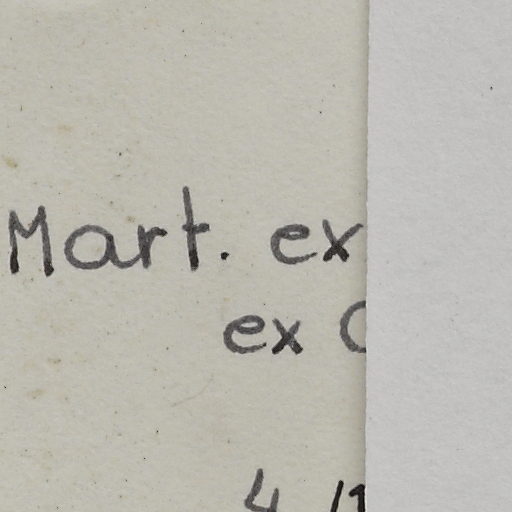 Mart. ex
ex
4